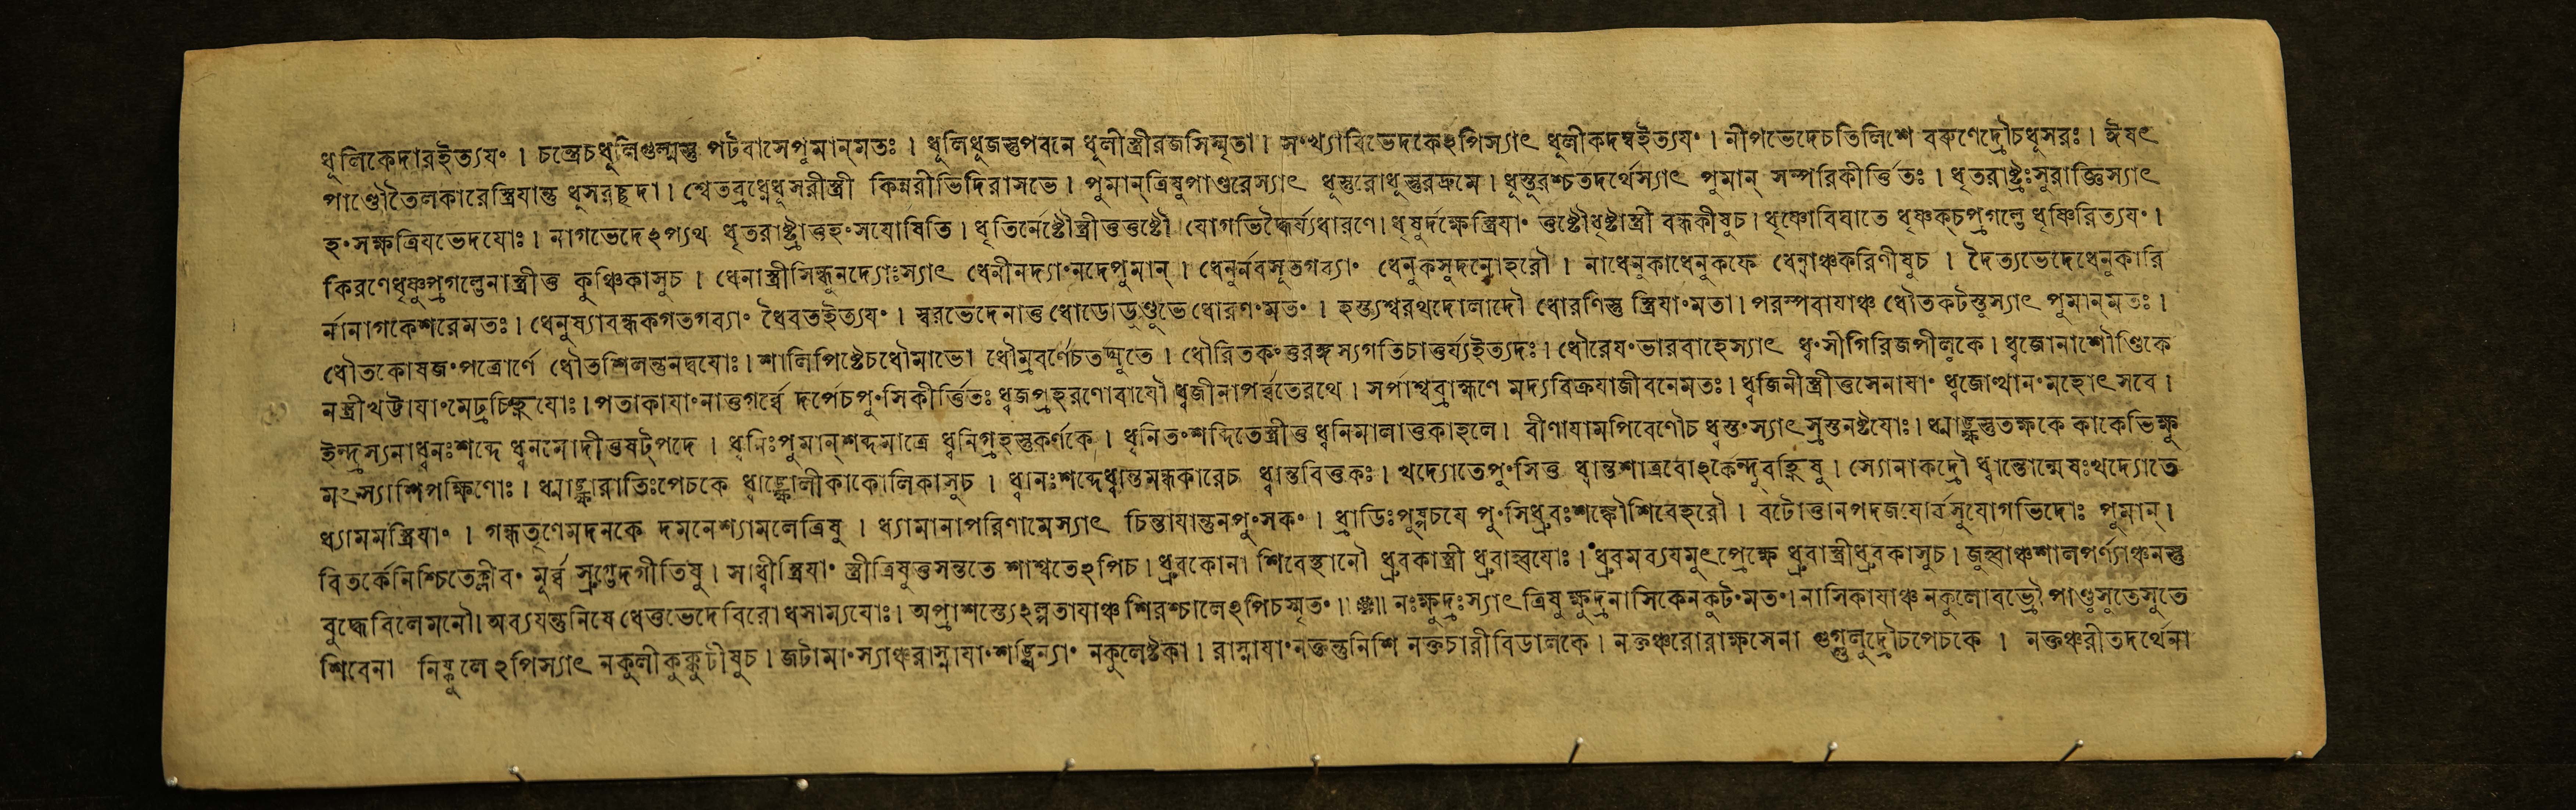 ধূলিকেদারইত্যযং । চন্ত্রেচধূলিগুল্মস্তু পটবাসেপুমান্‌মতঃ । ধূলিধুজস্তুপবনে ধূলীস্ত্রীরজসিস্মৃতা । সংখ্যাবিভেদকেঽপিস্যাৎ ধূলীকদম্বইত্যযং । নীপভেদেচতিলিশে বরুণেদ্রৌচধূসরঃ । ঈষৎ
পাণ্ডৌতৈলকারেস্ত্রিযান্তু ধূসরছ্ছদা । শ্বেতবুধ্নেধূসরীস্ত্রী কিন্নরীভিদিরাসভে । পুমান্‌ত্রিষুপাণ্ডরেস্যাৎ ধূস্তুরোধূস্তুরদ্রুমে । ধূস্তূরশ্চতদর্থেস্যাৎ পুমান্ সম্পরিকীর্ত্তিতঃ । ধৃতরাষ্ট্রঃসুরাজ্ঞিস্যাৎ
হংসক্ষত্রিযভেদযোঃ । নাগভেদেঽপ্যথ ধৃতরাষ্ট্রীত্তহংসযোষিতি । ধৃতির্নেষ্টৌস্ত্রীত্ততুষ্টৌ যোগভিদ্ধৈর্য্যধারণে । ধৃষুর্দক্ষেস্ত্রিযাং ত্তষ্টৌধৃষ্টাস্ত্রী বন্ধকীষুচ । ধৃষ্ণোবিঘাতে ধৃষ্ণক্‌চপ্রগল্ভে ধৃষ্ণিরিত্যযং ।
কিরণেধৃষ্ণুপ্রগল্ভেনাস্ত্রীত্ত কুঞ্চিকাসুচ । ধেনাস্ত্রীসিন্ধুনদ্যোঃস্যাৎ ধেনীনদ্যাংনদেপুমান্ । ধেনুর্নবসূতগব্যাং ধেনুকসুদনোহরৌ । নাধেনুকাধেনুকফে ধেনাঞ্চকরিণীষুচ । দৈত্যভেদেধেনুকারি
র্নানাগকেশরেমতঃ । ধেনুষ্যাবন্ধকগতগব্যাং ধৈবতইত্যযং । স্বরভেদেনাত্ত ধোডোডুণ্ডুভে ধোরণংমতং । হস্ত্যশ্বরথদোলাদৌ ধোরণিস্তু স্ত্রিযাংমতা । পরম্পবাযাঞ্চ ধৌতকটস্তুস্যাৎ পুমান্‌মতঃ ।
ধৌতকোষজংপত্রোর্ণে ধৌতশিলন্তুনদ্বযোঃ । শালিপিষ্টেচধৌমাভো ধৌম্রবর্ণেচতদ্যুতে । ধৌরিতকংত্তরঙ্গস্যগতিচাত্তর্য্যইত্যদঃ । ধৌরেযংভারবাহেস্যাৎ ধ্বংসীগিরিজপীলুকে । ধ্বজোনাশৌণ্ডিকে
নস্ত্রীখট্টাযাংমেঢ্রচিহ্নযোঃ । পতাকাযাংনাত্তগর্ব্বে দর্পেচপুংসিকীর্ত্তিতঃ ধ্বজপ্রহরণোবাযৌ ধ্বজীনাপর্ব্বতেরথে । সর্পাশ্বব্রাহ্মণে মদ্যবিক্রযাজীবনেমতঃ । ধ্বজিনীস্ত্রীত্তসেনাযাং ধ্বজোত্থানংমহোৎসবে ।
ইন্দ্রস্যনাধ্বনঃশব্দে ধ্বনমোদীত্তষট্‌পদে । ধ্বনিঃপুমান্‌শব্দমাত্রে ধ্বনিগ্রহস্তুকর্ণকে । ধ্বনিতংশব্দিতেস্ত্রীত্ত ধ্বনিমালাত্তকাহলে । বীণাযামপিবেণৌচ ধ্বস্তংস্যাৎস্রস্তনষ্টযোঃ । ধ্মাঙ্ক্ষস্তুতক্ষকে কাকেভিক্ষু
মৎস্যাশিপক্ষিণোঃ । ধ্মাঙ্ক্ষারাতিঃপেচকে ধ্বাঙ্ক্ষোলীকাকোলিকাসুচ । ধ্বানঃশব্দেধ্বান্তমন্ধকারেচ ধ্বান্তবিত্তকঃ । খদ্যোতেপুংসিত্ত ধ্বান্তশাত্রবোঽর্কেন্দুবহ্নিষু । স্যোনাকদ্রৌ ধ্বান্তোন্মেষঃখদ্যোতে
ধ্যামমস্ত্রিযাং । গন্ধতৃণেমদনকে দমনেশ্যামলেত্রিষু । ধ্যামানাপরিণামেস্যাৎ চিন্তাযান্তুনপুংসকং । ধ্রাডিঃপুষ্পচযে পুংসিধ্রুবঃশঙ্কৌশিবেহরৌ । বটোত্তানপদজযোর্বসুযোগভিদোঃ পুমান্ ।
বিতর্কেনিশ্চিতেক্লীবং মূর্ব্ব স্রুগ্ভেদগীতিষু । সাধ্বীস্ত্রিযাং স্ত্রীত্রিষুত্তসন্ততে শাশ্বতেঽপিচ । ধ্রুবকোনা শিবেস্থানৌ ধ্রুবকাস্ত্রী ধ্রুবাহ্বযোঃ । ধ্রুবমব্যযমুৎপ্রেক্ষে ধ্রুবাস্ত্রীধ্রুবকাসুচ । জুহ্বাঞ্চশালপর্ণ্যাঞ্চনস্তু
বুদ্ধেবিলেমনৌ । অব্যযন্তুনিষেধেত্তভেদেবিরোধসাম্যযোঃ । অপ্রাশস্ত্যেঽল্পতাযাঞ্চ শিরশ্চালেঽপিচস্মৃতং ॥ ॥ নঃক্ষুদ্রঃস্যাৎত্রিষুক্ষুদ্রনাসিকেনকুটংমতং । নাসিকাযাঞ্চ নকুলোবভ্রৌ পাণ্ডুসুতেসুতে
শিবেনা নিষ্কুলেঽপিস্যাৎ নকুলীকুক্কুটীষুচ । জটামাংস্যাঞ্চরাস্নাযাংশঙ্খিন্যাং নকুলেষ্টকা । রাস্নাযাংনক্তন্তুনিশি নক্তচারীবিডালকে । নক্তঞ্চরোরাক্ষসেনা গুগ্গুলুদ্রৌচপেচকে । নক্তঞ্চরীতদর্থেনা